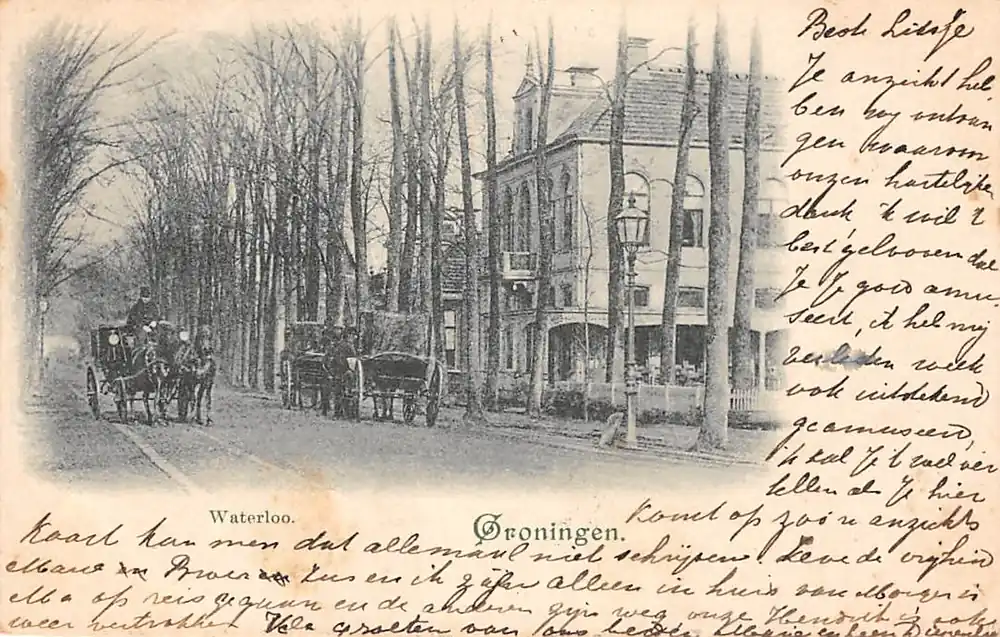 Beste Liesje
Je anzicht heb
ben wij ontvan
gen waarom
onzen hartelijke
dank 'k wil 't
best gelooven dat
Je Je goed amu
seert, ik heb mij
verleden week
ook uitstekend
geamuseerd,
ik zal Je 't wel ver
tellen als Je hier
Komt op zoo'n anzichts
Waterloo.
Groningen.
Kaart kan men dat allemaal niet schrijven. Leve de vrijheid
en Zus en ik zijn alleen in huis van Morgen is
Ma op reis gegaan en de anderen zijn weg onze Hendrik is ook
weer vertrokken groeten van ons